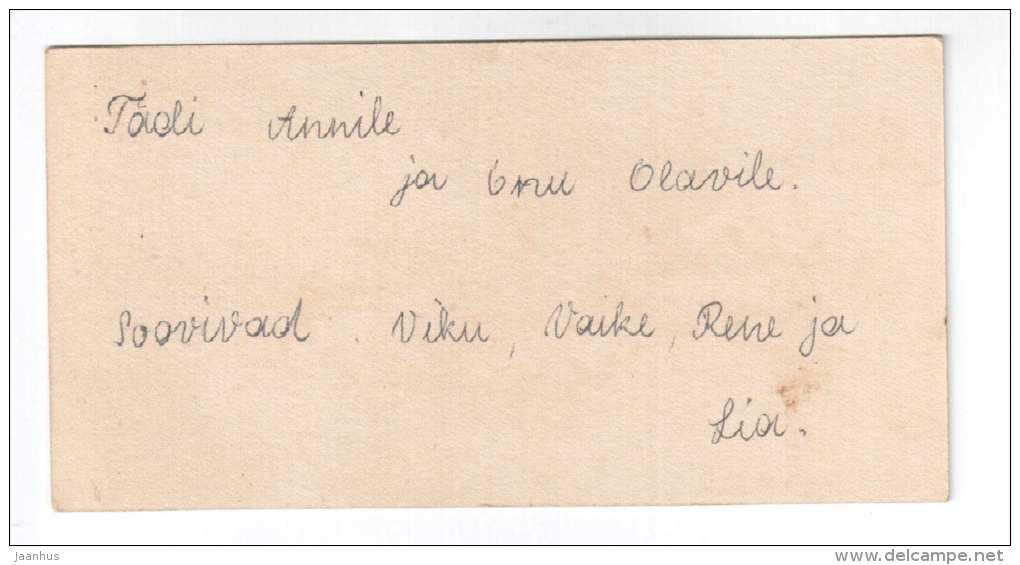 Tädi Annile
ja onu Olavile.
Soovivad. Viku, Vaike, Rene ja
Lia.
jaanhus
www.delcampe.net